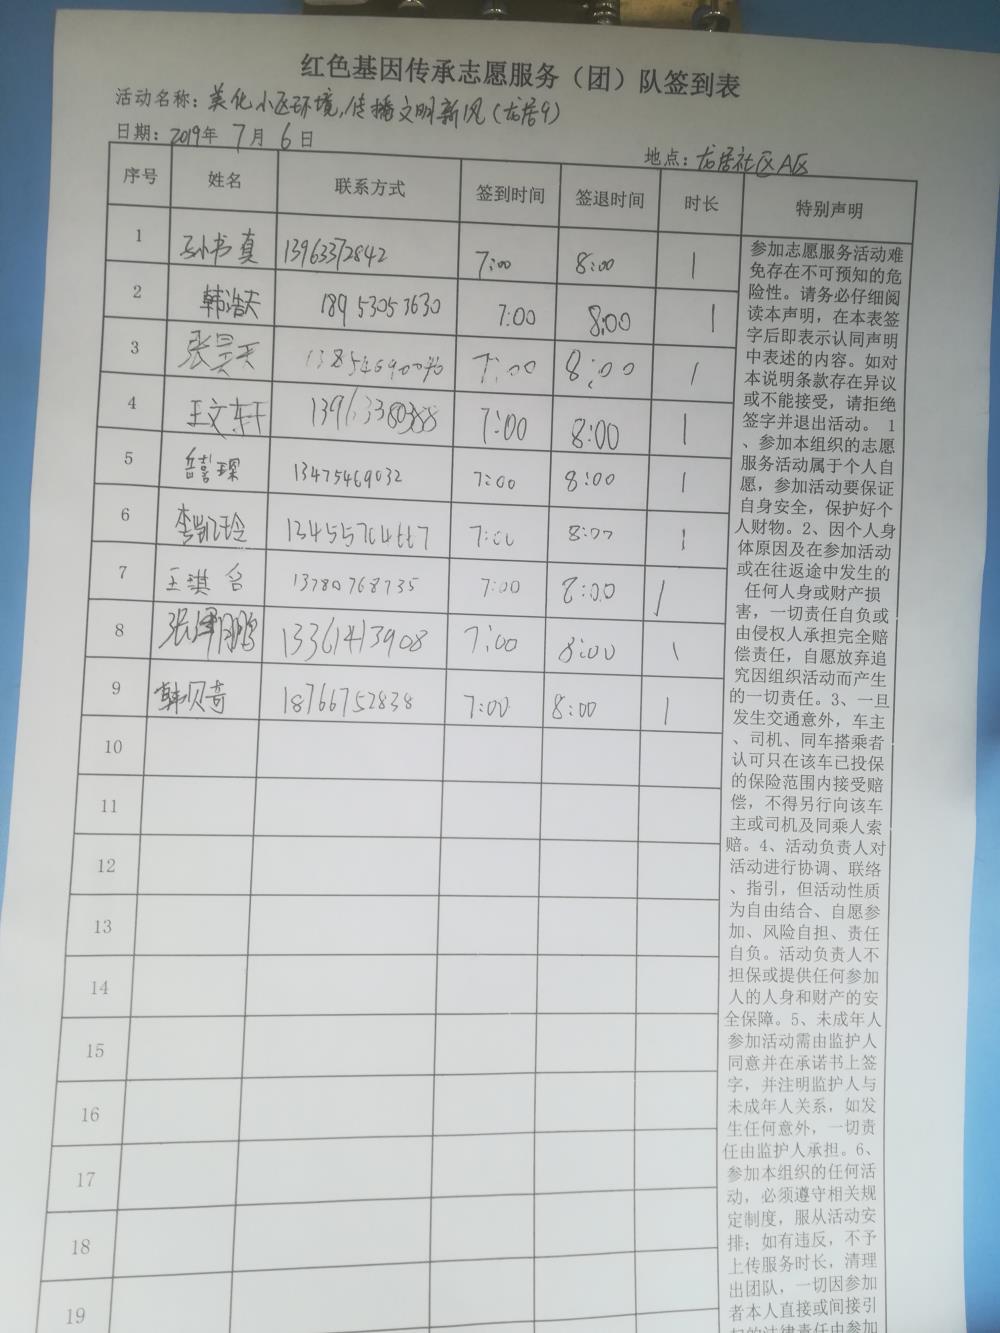 红色基因传承志愿服务（团）队签到表
活动名称：美化小区环境，传播文明新风（龙居9）
日期：2019年 7月 6日
地点：龙居社区A区
序号 姓名 联系方式 签到时间 签退时间 时长 特别声明
1 孙书真 13963372842 7:00 8:00 1
2 韩浩天 18953053630 7:00 8:00 1
3 张昊天 7:00 8:00 1
4 王文轩 13963380388 7:00 8:00 1
5 13475469032 7:00 8:00 1
6 李凯玲 13455704667 7:00 8:00 1
7 王琪名 13780768735 7:00 8:00 1
8 13361413908 7:00 8:00 1
9 韩贝奇 18766752838 7:00 8:00 1
10
11
12
13
14
15
16
17
18
19
参加志愿服务活动难
免存在不可预知的危
险性。请务必仔细阅
读本声明，在本表签
字后即表示认同声明
中表述的内容。如对
本说明条款存在异议
或不能接受，请拒绝
签字并退出活动。 1
、参加本组织的志愿
服务活动属于个人自
愿，参加活动要保证
自身安全，保护好个
人财物。2、因个人身
体原因及在参加活动
或在往返途中发生的
任何人身或财产损
害，一切责任自负或
由侵权人承担完全赔
偿责任，自愿放弃追
究因组织活动而产生
的一切责任。3、一旦
发生交通意外，车主
、司机、同车搭乘者
认可只在该车已投保
的保险范围内接受赔
偿，不得另行向该车
主或司机及同乘人索
赔。4、活动负责人对
活动进行协调、联络
、指引，但活动性质
为自由结合、自愿参
加、风险自担、责任
自负。活动负责人不
担保或提供任何参加
人的人身和财产的安
全保障。5、未成年人
参加活动需由监护人
同意并在承诺书上签
字，并注明监护人与
未成年人关系，如发
生任何意外，一切责
任由监护人承担。6、
参加本组织的任何活
动，必须遵守相关规
定制度，服从活动安
排；如有违反，不予
上传服务时长，清理
出团队，一切因参加
者本人直接或间接引
起的法律责任由参加